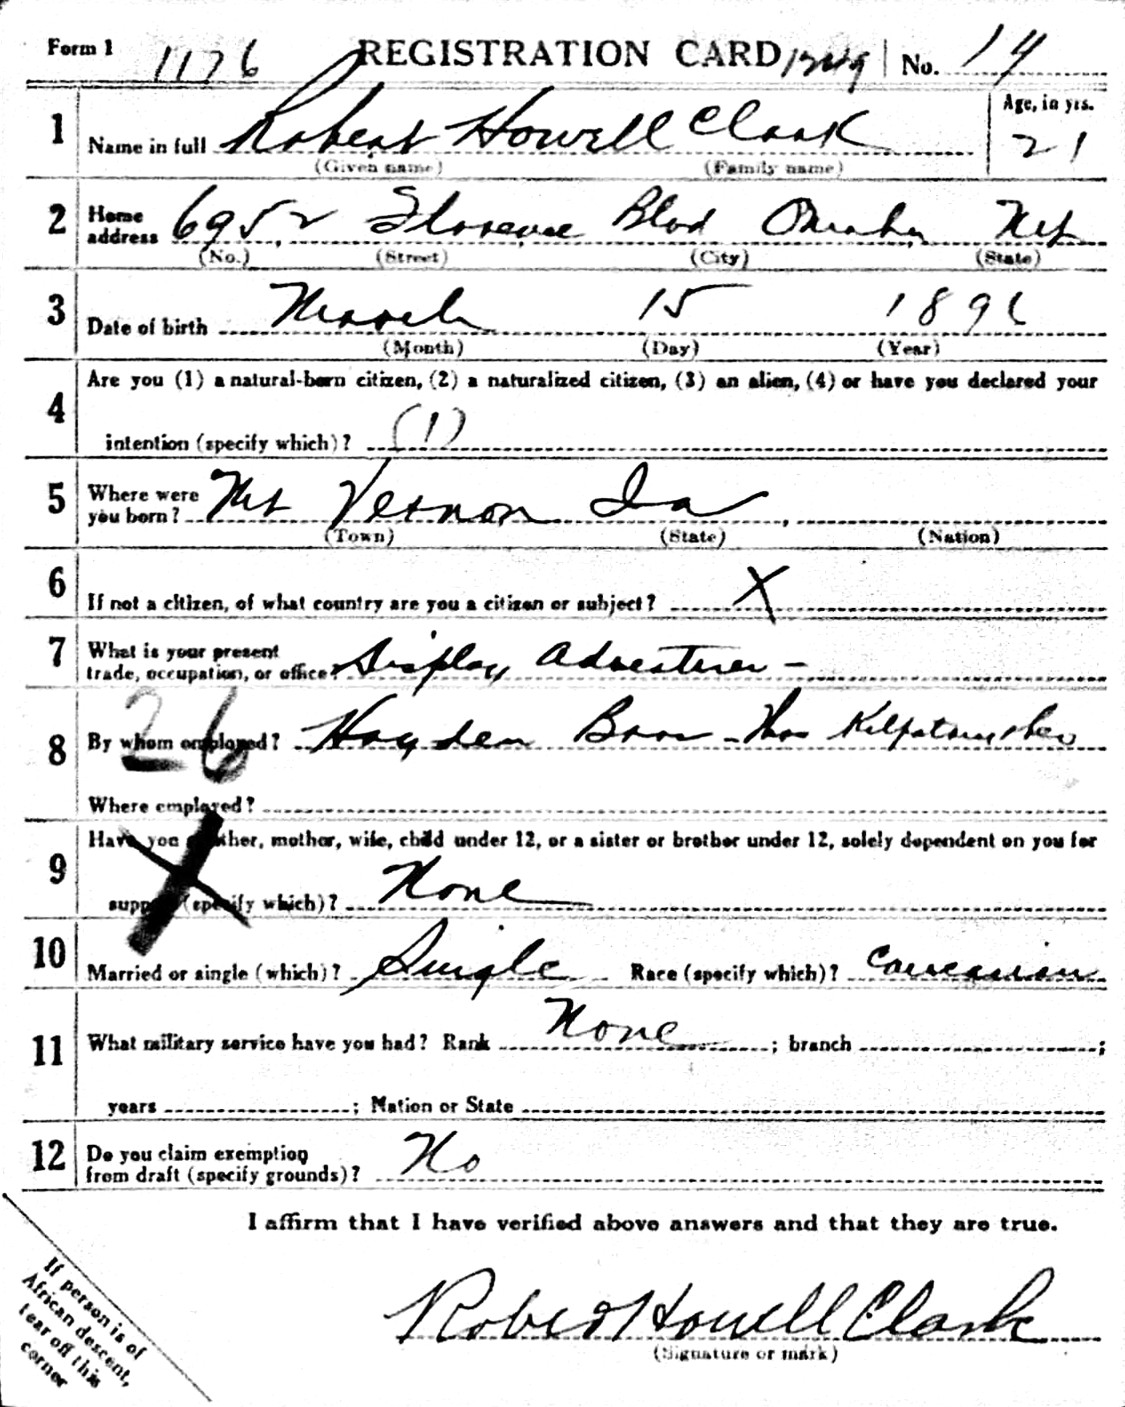 Form 1 1176 REGISTRATION CARD No. 14
1 Name in full Robert Howell Clark Age, in yrs. 21
(Given name) (Family name)
2 Home address 6952 Florence Blvd Omaha Neb
(No.) (Street) (City) (State)
3 Date of birth March 15 1896
(Month) (Day) (Year)
4 Are you (1) a natural-born citizen, (2) a naturalized citizen, (3) an alien, (4) or have you declared your
intention (specify which)? (1)
5 Where were you born? Mt Vernon Ia
(Town) (State) (Nation)
6 If not a citizen, of what country are you a citizen or subject? X
7 What is your present trade, occupation, or office? Display Advertiser -
26
8 By whom employed? Hayden Bros - Thos Kilpatrick
Where employed?
9 Have you a father, mother, wife, child under 12, or a sister or brother under 12, solely dependent on you for
support (specify which)? None
10 Married or single (which)? Single Race (specify which)? Caucasian
11 What military service have you had? Rank None ; branch ;
years ; Nation or State
12 Do you claim exemption from draft (specify grounds)? No
I affirm that I have verified above answers and that they are true.
Robert Howell Clark
(Signature or mark)
If person is of
African descent,
tear off this
corner